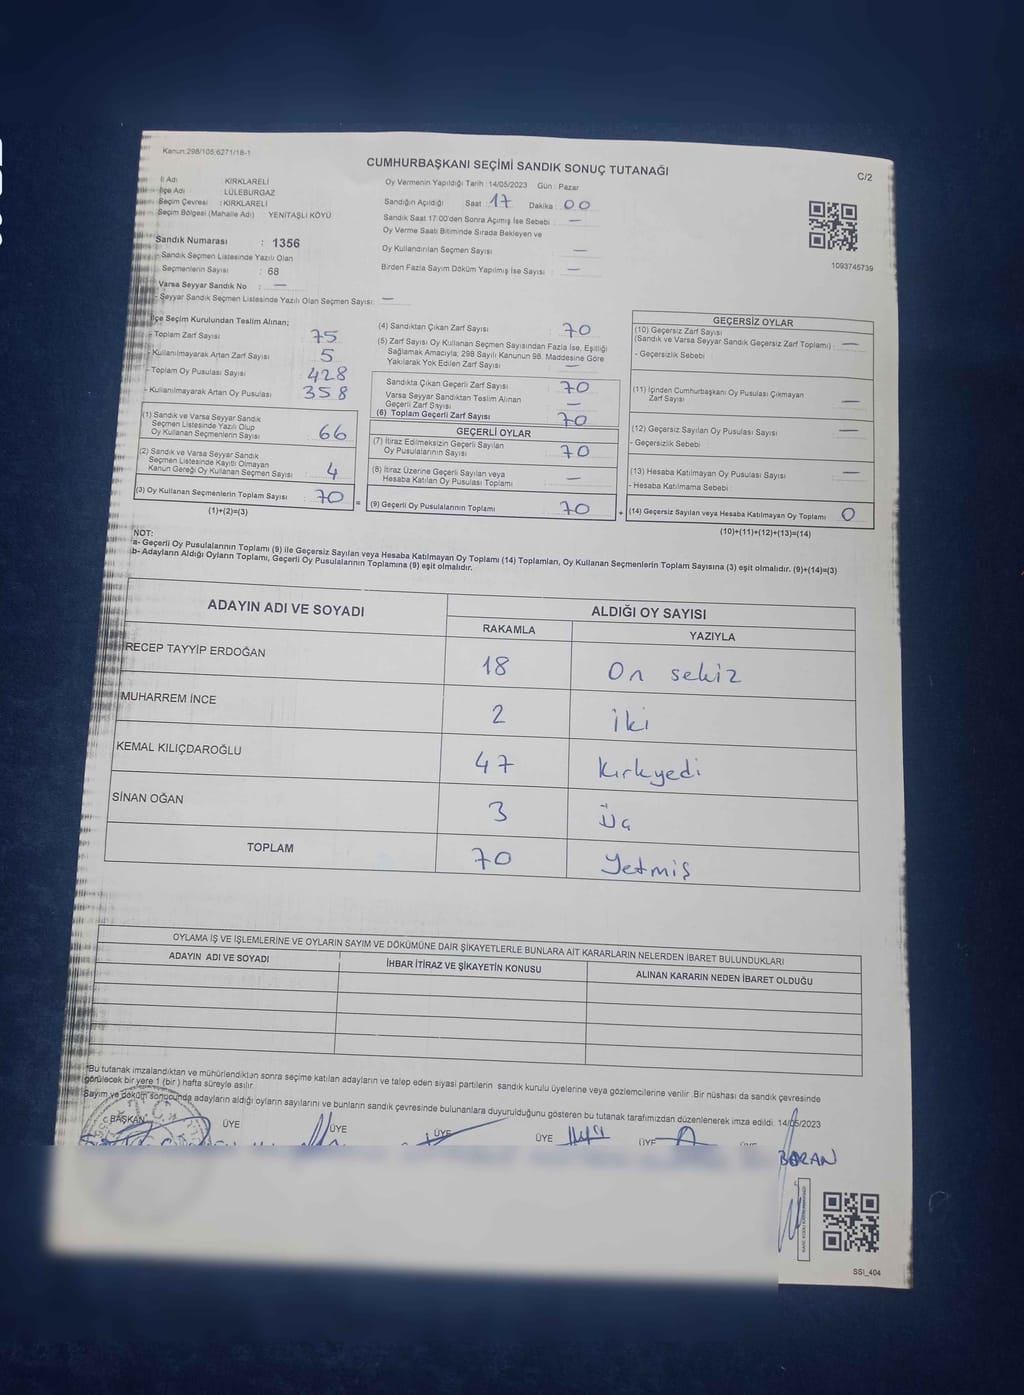 Kanun:298/105,6271/18-1
CUMHURBAŞKANI SEÇİMİ SANDIK SONUÇ TUTANAĞI
C/2
İl Adı KIRKLARELİ
İlçe Adı LÜLEBURGAZ
Seçim Çevresi : KIRKLARELİ
Seçim Bölgesi (Mahalle Adı) YENİTAŞLI KÖYÜ
Sandık Numarası : 1356
Sandık Seçmen Listesinde Yazılı Olan
Seçmenlerin Sayısı : 68
Varsa Seyyar Sandık No : —
- Seyyar Sandık Seçmen Listesinde Yazılı Olan Seçmen Sayısı: —
Oy Vermenin Yapıldığı Tarih : 14/05/2023 Gün : Pazar
Sandığın Açıldığı Saat : 17 Dakika : 00
Sandık Saat 17:00'den Sonra Açılmış İse Sebebi : —
Oy Verme Saati Bitiminde Sırada Bekleyen ve
Oy Kullandırılan Seçmen Sayısı : —
Birden Fazla Sayım Döküm Yapılmış İse Sayısı : —
1093745739
İlçe Seçim Kurulundan Teslim Alınan;
- Toplam Zarf Sayısı 75
- Kullanılmayarak Artan Zarf Sayısı 5
- Toplam Oy Pusulası Sayısı 428
- Kullanılmayarak Artan Oy Pusulası 358
(1) Sandık ve Varsa Seyyar Sandık
Seçmen Listesinde Yazılı Olup
Oy Kullanan Seçmenlerin Sayısı 66
(2) Sandık ve Varsa Seyyar Sandık
Seçmen Listesinde Kayıtlı Olmayan
Kanun Gereği Oy Kullanan Seçmen Sayısı : 4
(3) Oy Kullanan Seçmenlerin Toplam Sayısı : 70 =
(1)+(2)=(3)
(4) Sandıktan Çıkan Zarf Sayısı : 70
(5) Zarf Sayısı Oy Kullanan Seçmen Sayısından Fazla İse, Eşitliği
Sağlamak Amacıyla; 298 Sayılı Kanunun 98. Maddesine Göre
Yakılarak Yok Edilen Zarf Sayısı : —
Sandıkta Çıkan Geçerli Zarf Sayısı : 70
Varsa Seyyar Sandıktan Teslim Alınan
Geçerli Zarf Sayısı —
(6) Toplam Geçerli Zarf Sayısı : 70
GEÇERLİ OYLAR
(7) İtiraz Edilmeksizin Geçerli Sayılan
Oy Pusulalarının Sayısı : 70
(8) İtiraz Üzerine Geçerli Sayılan veya
Hesaba Katılan Oy Pusulası Toplamı : —
(9) Geçerli Oy Pusulalarının Toplamı : 70 +
GEÇERSİZ OYLAR
(10) Geçersiz Zarf Sayısı
(Sandık ve Varsa Seyyar Sandık Geçersiz Zarf Toplamı) : —
- Geçersizlik Sebebi
(11) İçinden Cumhurbaşkanı Oy Pusulası Çıkmayan
Zarf Sayısı —
(12) Geçersiz Sayılan Oy Pusulası Sayısı —
- Geçersizlik Sebebi
(13) Hesaba Katılmayan Oy Pusulası Sayısı —
- Hesaba Katılmama Sebebi
(14) Geçersiz Sayılan veya Hesaba Katılmayan Oy Toplamı : 0
(10)+(11)+(12)+(13)=(14)
NOT:
a- Geçerli Oy Pusulalarının Toplamı (9) ile Geçersiz Sayılan veya Hesaba Katılmayan Oy Toplamı (14) Toplamları, Oy Kullanan Seçmenlerin Toplam Sayısına (3) eşit olmalıdır. (9)+(14)=(3)
b- Adayların Aldığı Oyların Toplamı, Geçerli Oy Pusulalarının Toplamına (9) eşit olmalıdır.
ADAYIN ADI VE SOYADI ALDIĞI OY SAYISI
RAKAMLA YAZIYLA
RECEP TAYYİP ERDOĞAN 18 On sekiz
MUHARREM İNCE 2 iki
KEMAL KILIÇDAROĞLU 47 Kırkyedi
SİNAN OĞAN 3 üç
TOPLAM 70 Yetmiş
OYLAMA İŞ VE İŞLEMLERİNE VE OYLARIN SAYIM VE DÖKÜMÜNE DAİR ŞİKAYETLERLE BUNLARA AİT KARARLARIN NELERDEN İBARET BULUNDUKLARI
ADAYIN ADI VE SOYADI İHBAR İTİRAZ VE ŞİKAYETİN KONUSU ALINAN KARARIN NEDEN İBARET OLDUĞU
*Bu tutanak imzalandıktan ve mühürlendikten sonra seçime katılan adayların ve talep eden siyasi partilerin sandık kurulu üyelerine veya gözlemcilerine verilir .Bir nüshası da sandık çevresinde
görülecek bir yere 1 (bir ) hafta süreyle asılır.
Sayım ve döküm sonucunda adayların aldığı oyların sayılarını ve bunların sandık çevresinde bulunanlara duyurulduğunu gösteren bu tutanak tarafımızdan düzenlenerek imza edildi. 14/05/2023
BAŞKAN ÜYE ÜYE ÜYE ÜYE ÜYE
BORAN
SSI_404